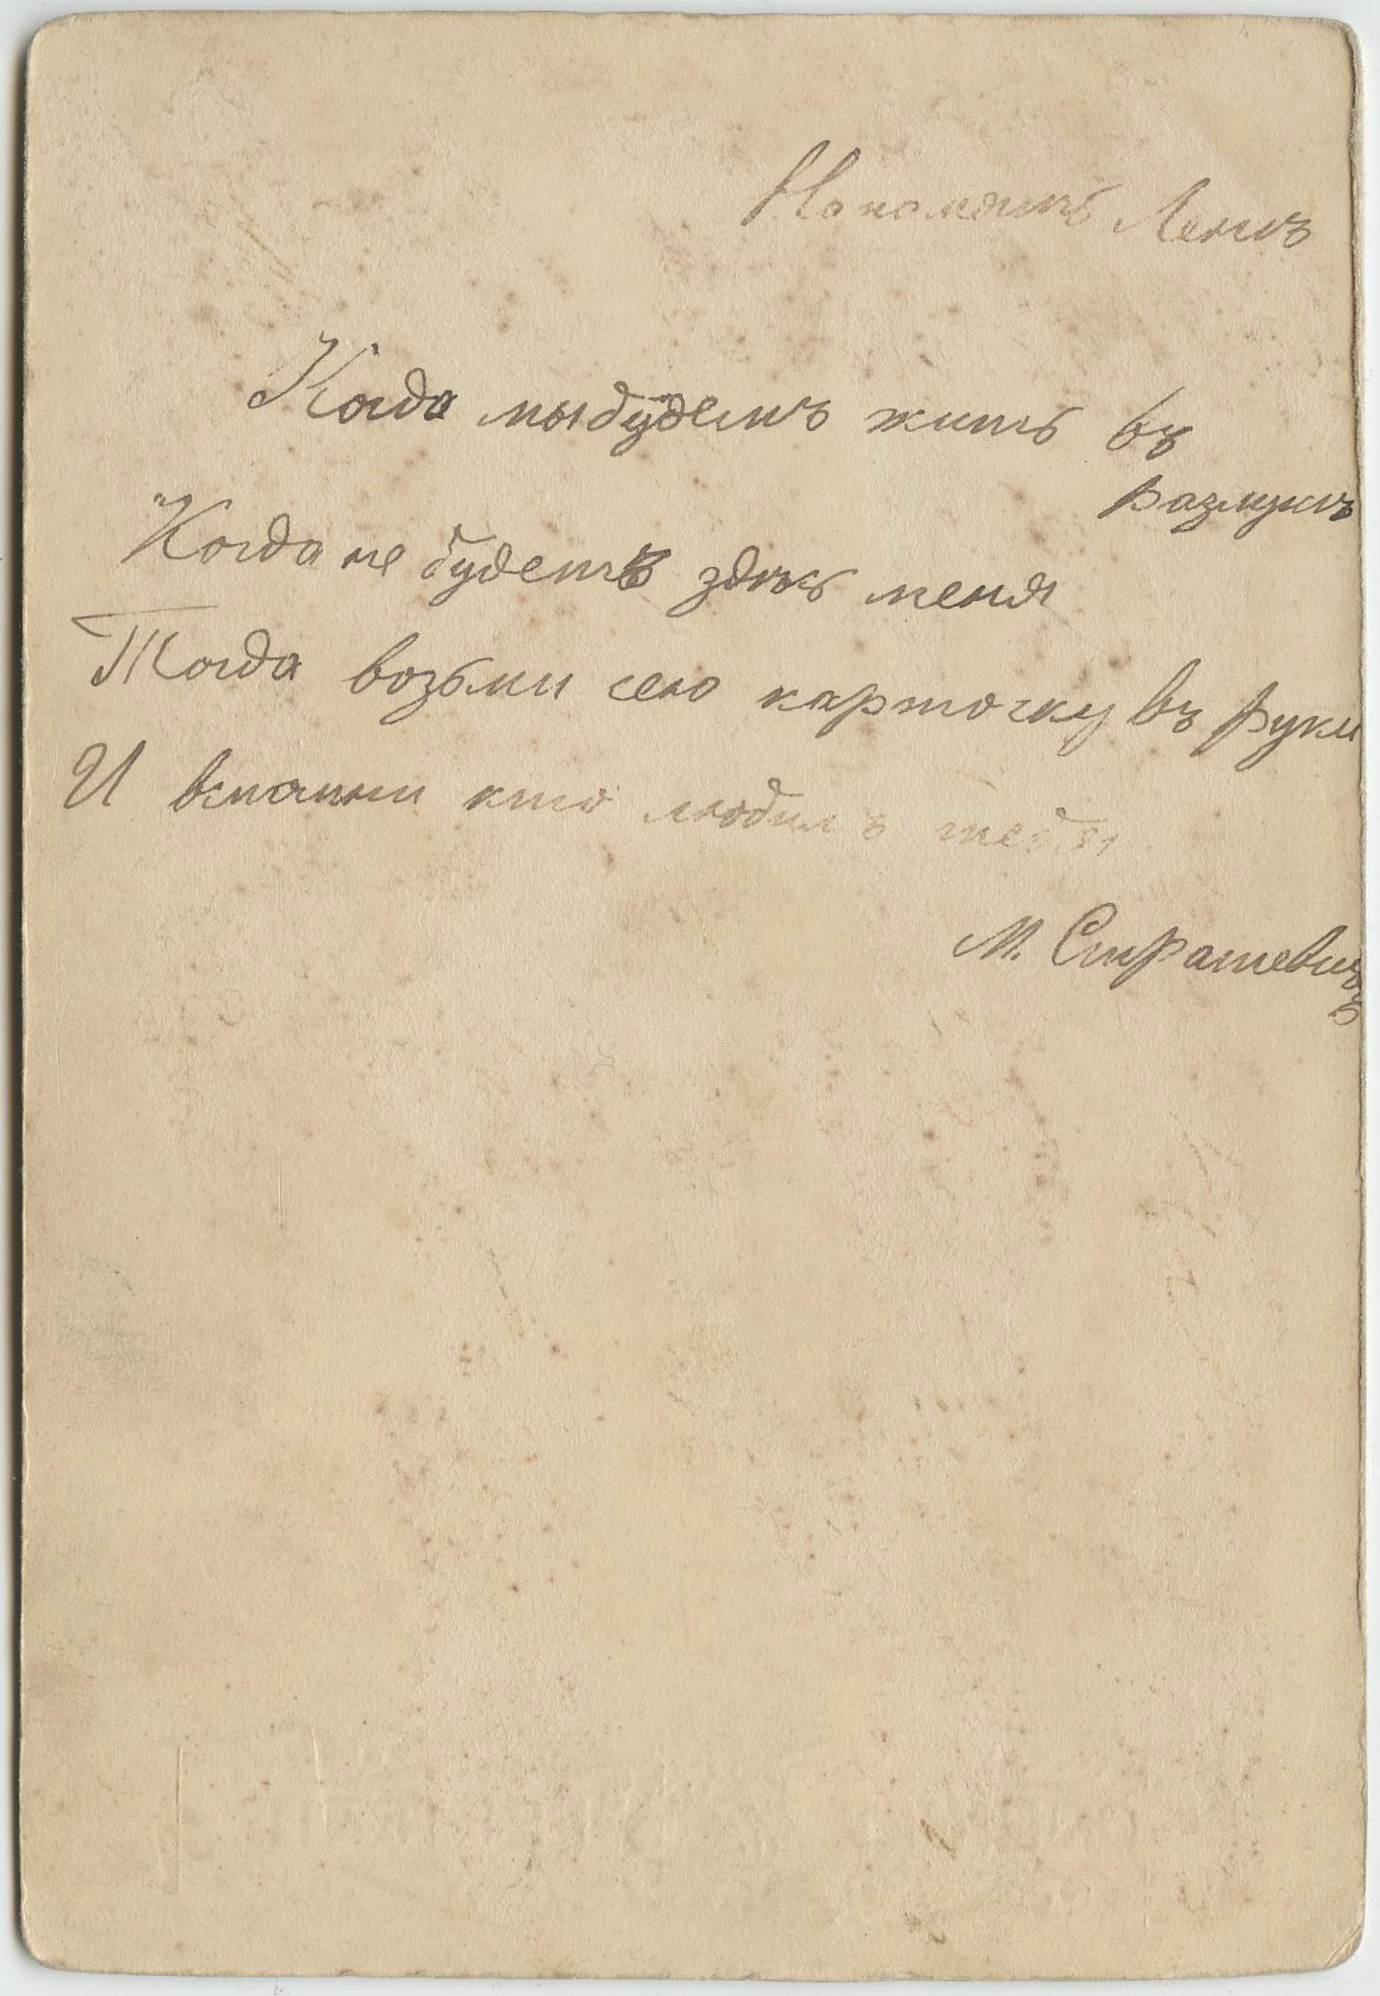 На память Ленѣ
Когда мы будемъ жить въ
разлукѣ
Когда не будетъ здѣсь меня
Тогда возьми сею карточку въ руки
И вспомни кто любилъ тебя
М. Страшевичъ